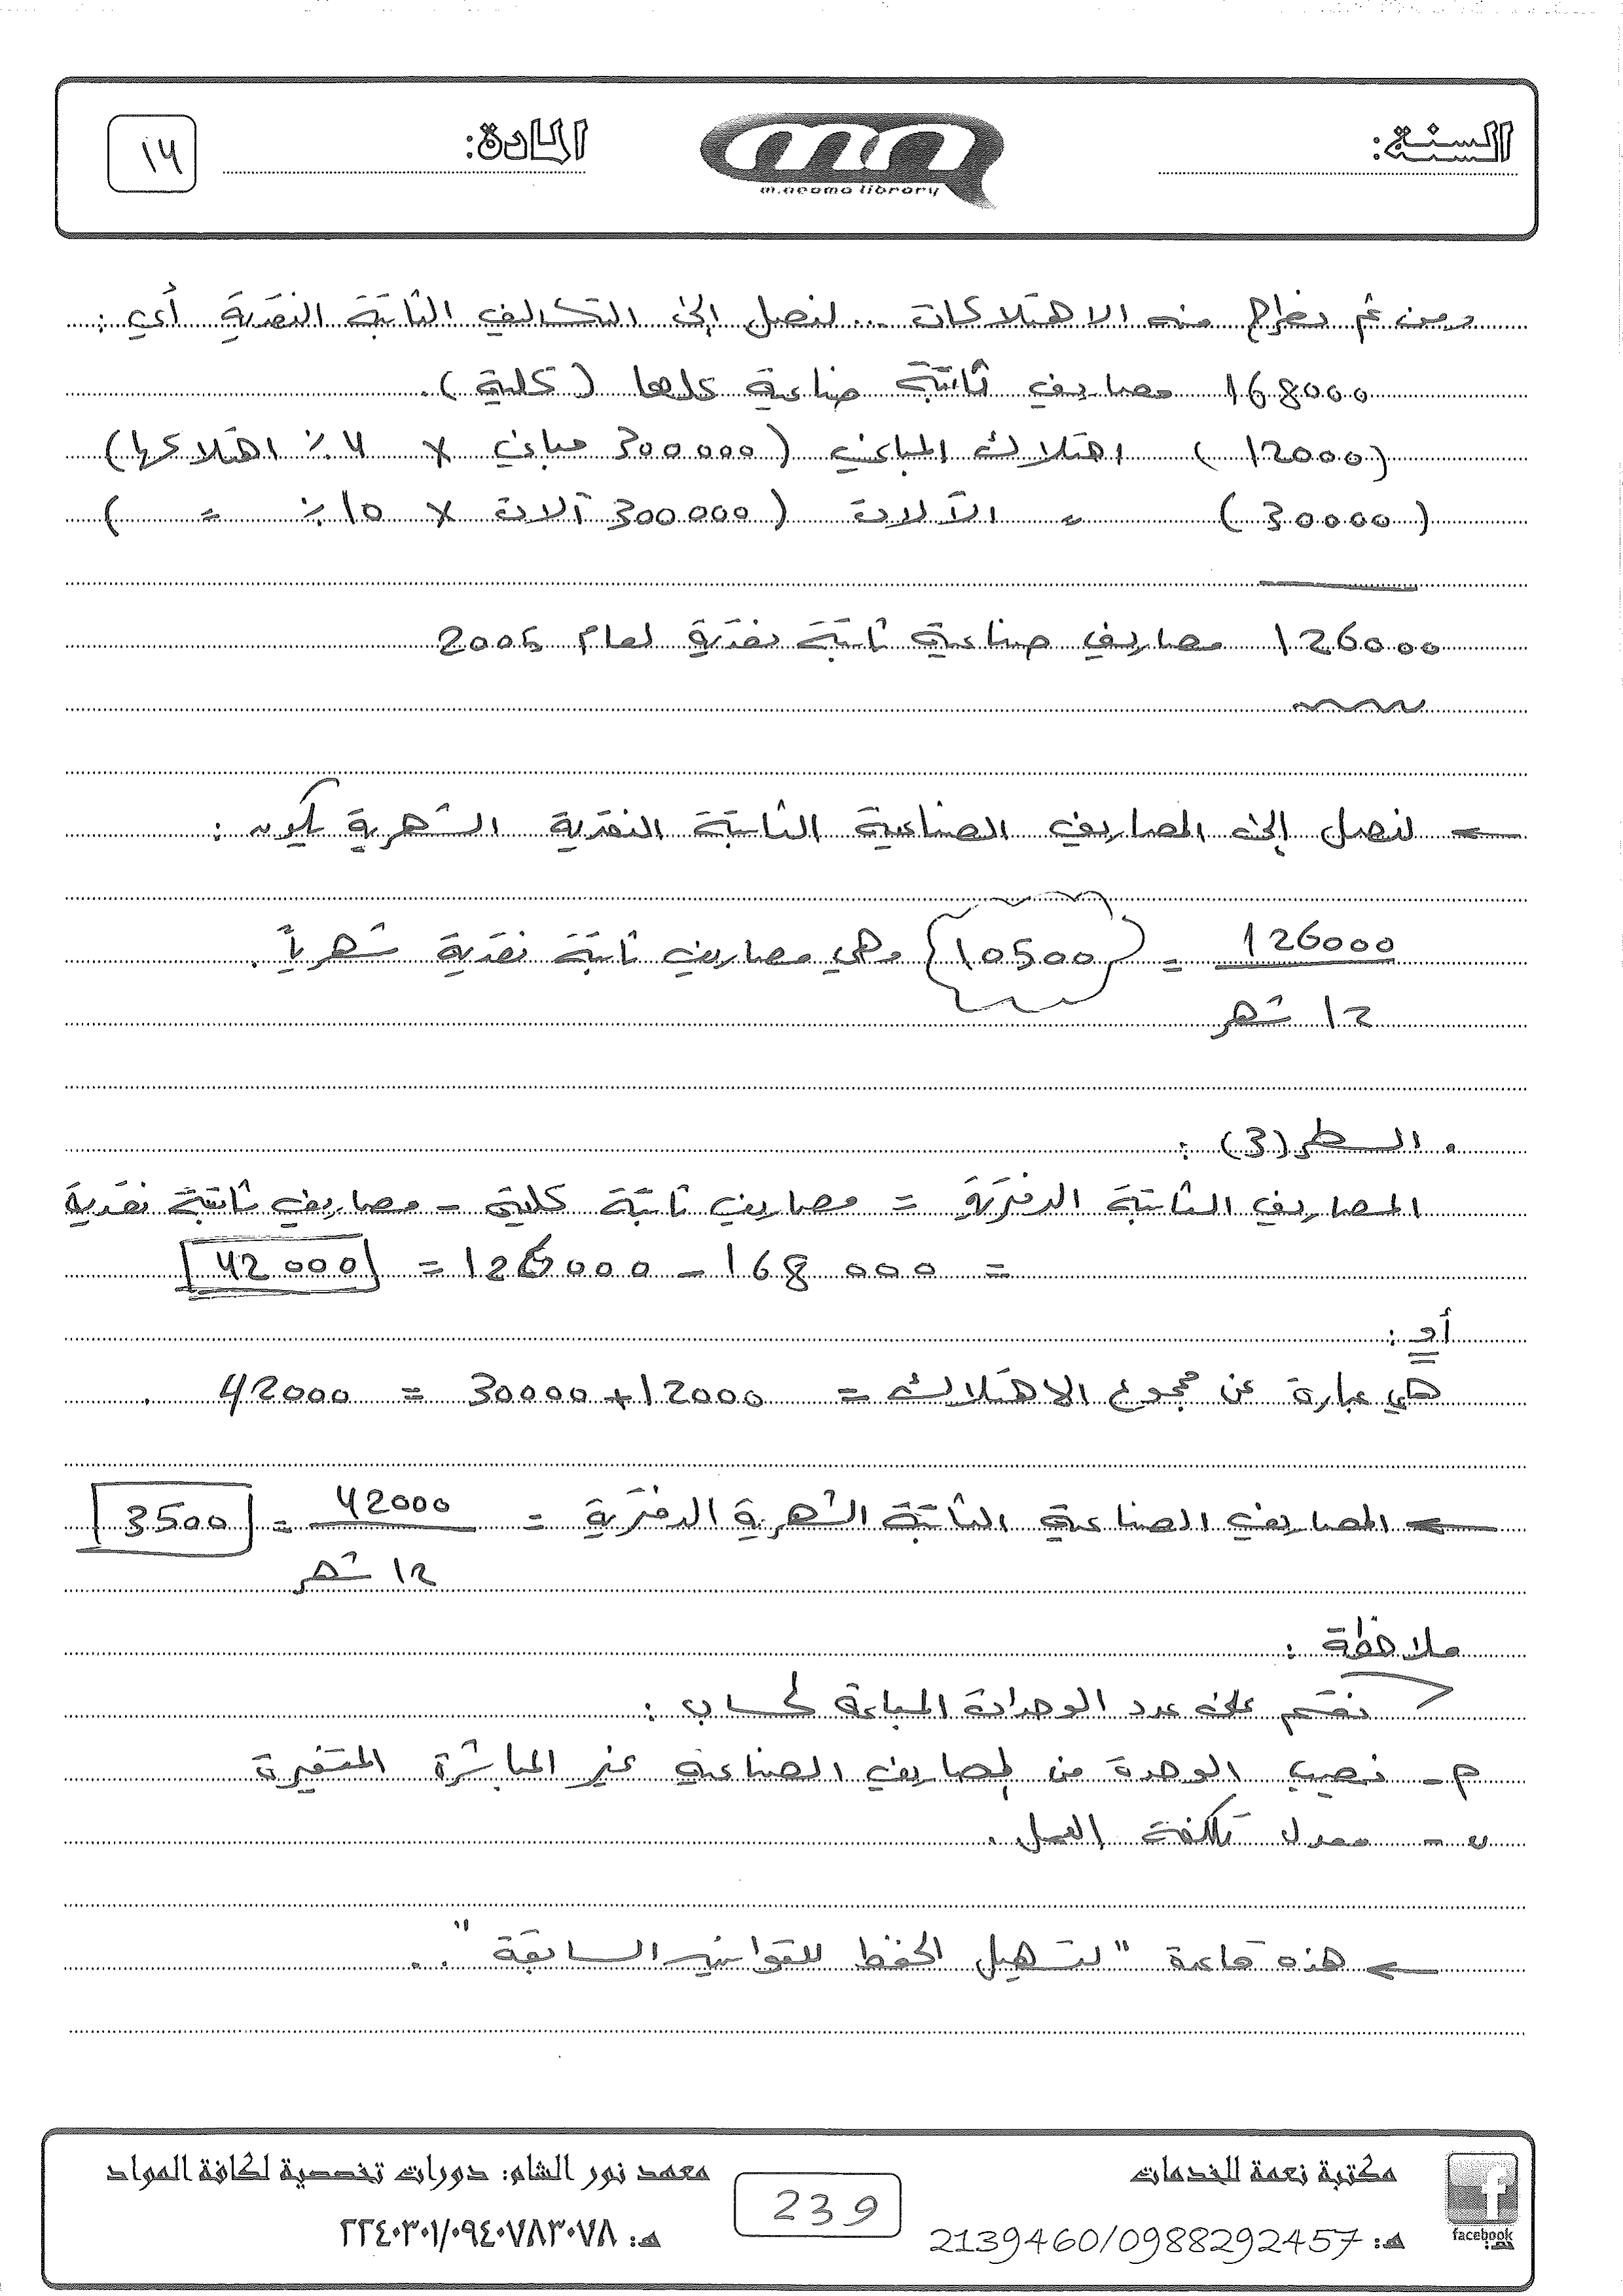 السنة:
m.neama library
المادة:
14
ومن ثم نطرح منه الاهتلاكات... لنصل إلى التكاليف الثابتة النقدية أي:
168000 مصاريف ثابتة صناعية كلها (كلية).
(12000) اهتلاك المباني (300000 مباني × 4% اهتلاكها)
(30000) = الآلات (300000 آلات × 10% =)
126000 مصاريف صناعية ثابتة نقدية لعام 2005
← لنصل إلى المصاريف الصناعية الثابتة النقدية الشهرية يكون:
126000 / 12 شهر = 10500 وهي مصاريف ثابتة نقدية شهرياً.
• السطر (3):
المصاريف الثابتة الدفترية = مصاريف ثابتة كلية - مصاريف ثابتة نقدية
= 168000 - 126000 = 42000
أو:
هي عبارة عن مجموع الاهتلاك = 12000 + 30000 = 42000.
← المصاريف الصناعية الثابتة الشهرية الدفترية = 42000 / 12 شهر = 3500
ملاحظة:
نقسم على عدد الوحدات المباعة لحساب:
م- نصيب الوحدة من المصاريف الصناعية غير المباشرة المتغيرة
ب- معدل تكلفة العمل.
← هذه قاعدة "لتسهيل الحفظ للقوانين السابقة"..
facebook
مكتبة نعمة للخدمات
هـ: 2139460/0988292457
239
معهد نور الشام: دورات تخصصية لكافة المواد
هـ: ٢٢٤٠٣٠١/٠٩٤٠٧٨٣٠٧٨